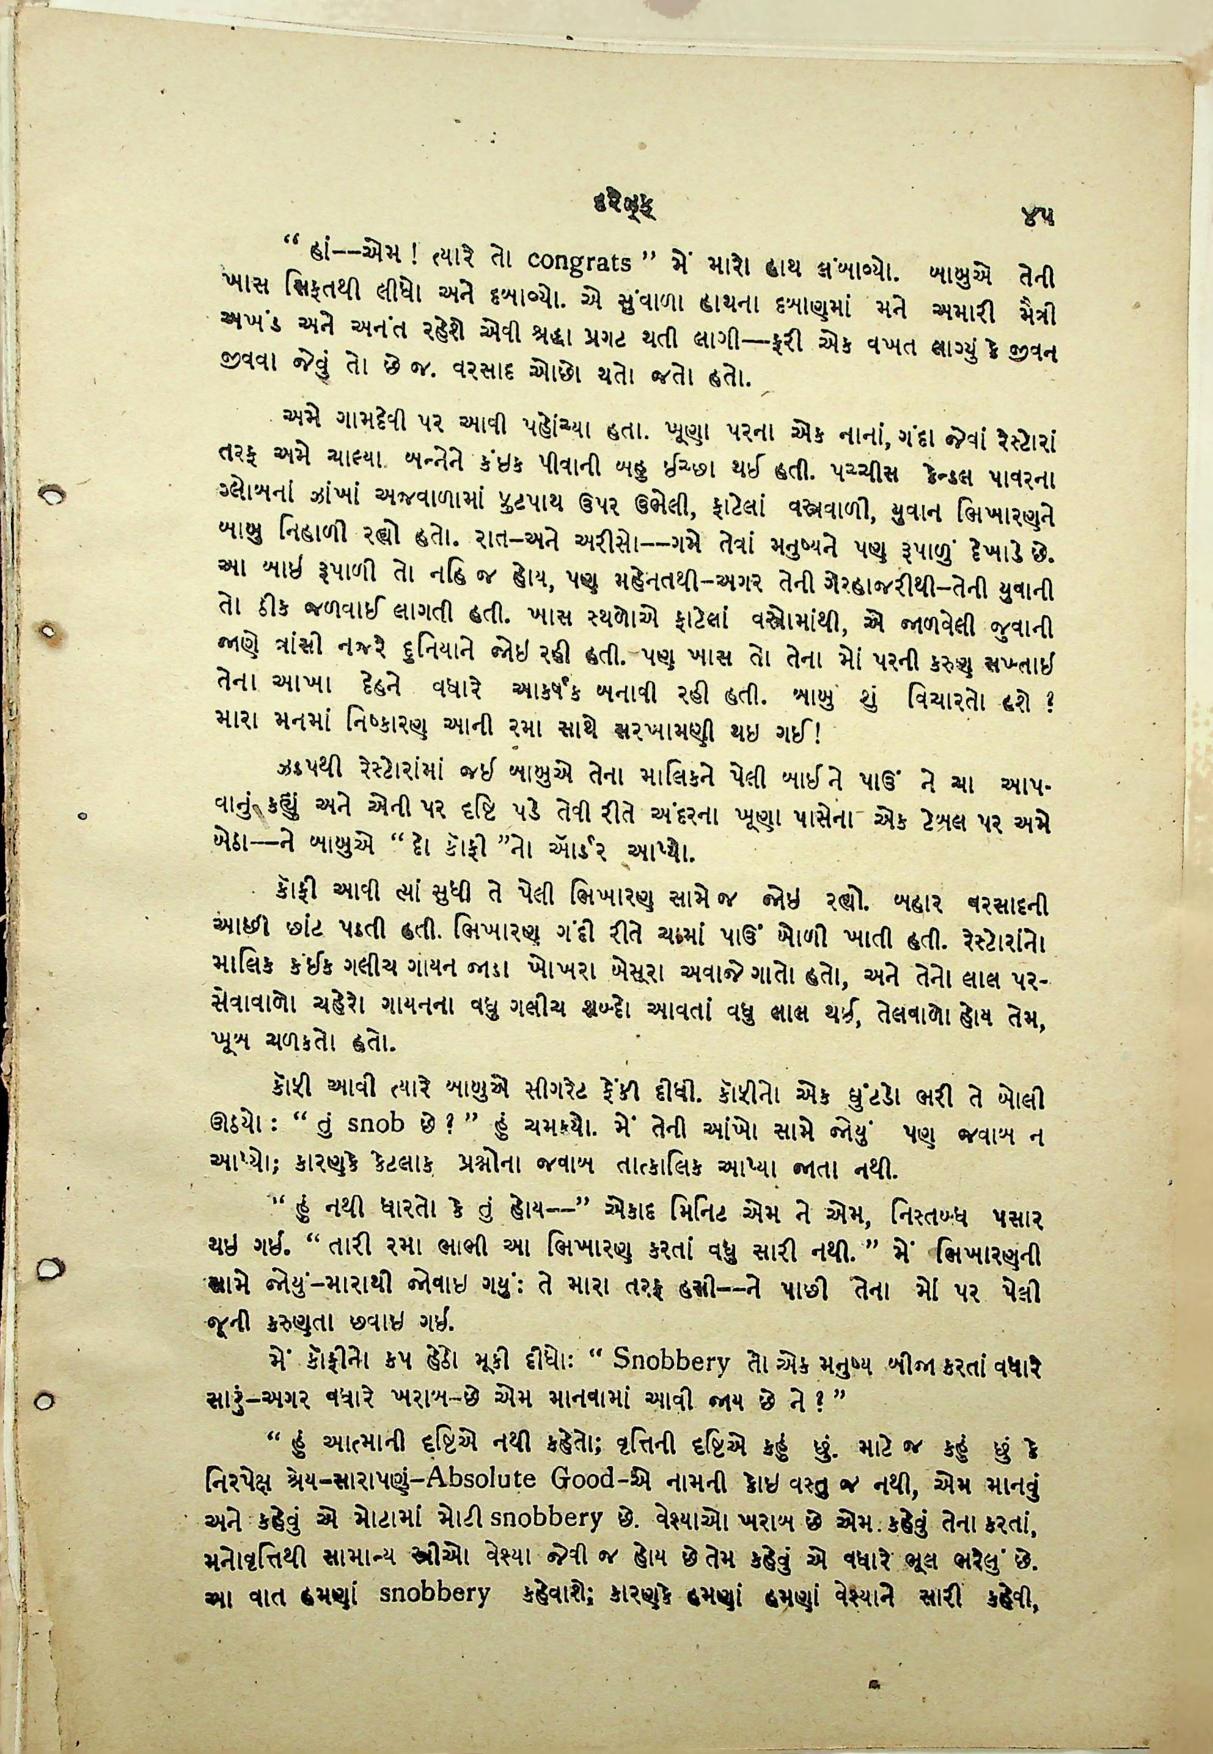 ૪૫
“ હાં––એમ ! ત્યારે તો congrats ” મેં મારો હાથ લંબાવ્યો. બાબુએ તેની
ખાસ સિફતથી લીધો અને દબાવ્યો. એ સુંવાળા હાથના દબાણમાં મને અમારી મૈત્રી
અખંડ અને અનંત રહેશે એવી શ્રદ્ધા પ્રગટ થતી લાગી—ફરી એક વખત લાગ્યું કે જીવન
જીવવા જેવું તો છે જ. વરસાદ ઓછો થતો જતો હતો.
અમે ગામદેવી પર આવી પહોંચ્યા હતા. ખૂણા પરના એક નાનાં, ગંદા જેવાં રેસ્ટોરાં
તરફ અમે ચાલ્યા. બન્નેને કંઇક પીવાની બહુ ઈચ્છા થઈ હતી. પચ્ચીસ કેન્ડલ પાવરના
ગ્લોબનાં ઝાંખાં અજવાળામાં ફુટપાથ ઉપર ઉભેલી, ફાટેલાં વસ્ત્રવાળી, યુવાન ભિખારણને
બાબુ નિહાળી રહ્યો હતો. રાત–અને અરીસો––ગમે તેવાં મનુષ્યને પણ રૂપાળું દેખાડે છે.
આ બાઇ રૂપાળી તો નહિ જ હોય, પણ મહેનતથી–અગર તેની ગેરહાજરીથી–તેની યુવાની
તો ઠીક જળવાઈ લાગતી હતી. ખાસ સ્થળોએ ફાટેલાં વસ્ત્રોમાંથી, એ જાળવેલી જુવાની
જાણે ત્રાંસી નજરે દુનિયાને જોઇ રહી હતી. પણ ખાસ તો તેના મોં પરની કરુણ સખ્તાઇ
તેના આખા દેહને વધારે આકર્ષક બનાવી રહી હતી. બાબુ શું વિચારતો હશે ?
મારા મનમાં નિષ્કારણ આની રમા સાથે સરખામણી થઇ ગઈ !
ઝડપથી રેસ્ટોરાંમાં જઈ બાબુએ તેના માલિકને પેલી બાઈને પાઉં ને ચા આપ-
વાનું કહ્યું અને એની પર દૃષ્ટિ પડે તેવી રીતે અંદરના ખૂણા પાસેના એક ટેબલ પર અમે
બેઠા––ને બાબુએ “ દો કૉફી ”નો ઑર્ડર આપ્યો.
કૉફી આવી ત્યાં સુધી તે પેલી ભિખારણ સામે જ જોઇ રહ્યો. બહાર વરસાદની
આછી છાંટ પડતી હતી. ભિખારણ ગંદી રીતે ચામાં પાઉં બોળી ખાતી હતી. રેસ્ટોરાંનો
માલિક કંઈક ગલીચ ગાયન જાડા ખોખરા બેસૂરા અવાજે ગાતો હતો, અને તેનો લાલ પર-
સેવાવાળો ચહેરો ગાયનના વધુ ગલીચ શબ્દો આવતાં વધુ લાલ થઈ, તેલવાળો હોય તેમ,
ખૂબ ચળકતો હતો.
કૉફી આવી ત્યારે બાબુએ સીગરેટ ફેંકી દીધી. કૉફીનો એક ઘુંટડો ભરી તે બોલી
ઊઠયો : “ તું snob છે ? ” હું ચમક્યો. મેં તેની આંખો સામે જોયું પણ જવાબ ન
આપ્યો; કારણકે કેટલાક પ્રશ્નોના જવાબ તાત્કાલિક આપ્યા જાતા નથી.
“ હું નથી ધારતો કે તું હોય––” એકાદ મિનિટ એમ ને એમ, નિસ્તબ્ધ પસાર
થઇ ગઇ. “ તારી રમા ભાભી આ ભિખારણ કરતાં વધુ સારી નથી. ” મેં ભિખારણની
સામે જોયું–મારાથી જોવાઇ ગયું : તે મારા તરફ હસી––ને પાછી તેના મોં પર પેલી
જૂની કરુણતા છવાઇ ગઇ.
મેં કૉફીનો કપ હેઠો મૂકી દીધો : “ Snobbery તો એક મનુષ્ય બીજા કરતાં વધારે
સારું–અગર વધારે ખરાબ–છે એમ માનવામાં આવી જાય છે ને ? ”
“ હું આત્માની દૃષ્ટિએ નથી કહેતો; વૃત્તિની દૃષ્ટિએ કહું છું. માટે જ કહું છું કે
નિરપેક્ષ શ્રેય–સારાપણું–Absolute Good–એ નામની કોઇ વસ્તુ જ નથી, એમ માનવું
અને કહેવું એ મોટામાં મોટી snobbery છે. વેશ્યાઓ ખરાબ છે એમ કહેવું તેના કરતાં,
મનોવૃત્તિથી સામાન્ય સ્ત્રીઓ વેશ્યા જેવી જ હોય છે તેમ કહેવું એ વધારે ભૂલ ભરેલું છે.
આ વાત હમણાં snobbery કહેવાશે; કારણકે હમણાં હમણાં વેશ્યાને સારી કહેવી,